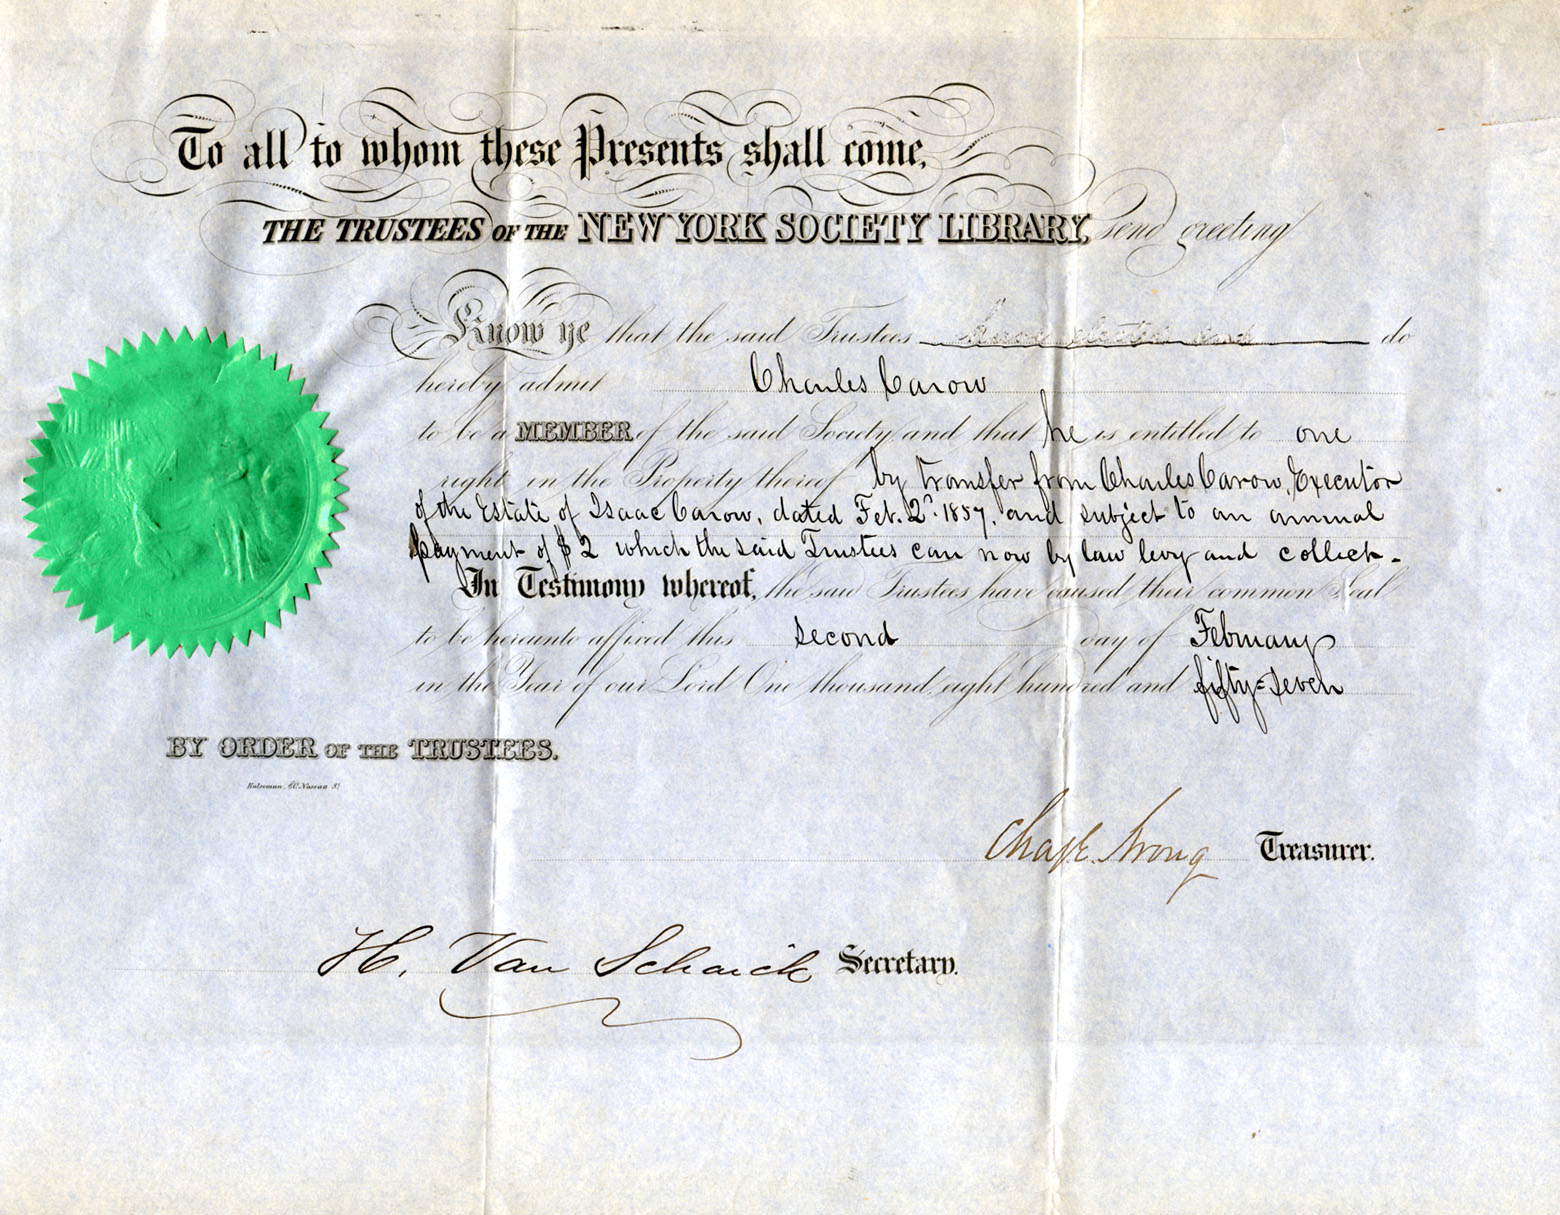 To all to whom these Presents shall come,
THE TRUSTEES OF THE NEW YORK SOCIETY LIBRARY, send greeting
Know ye that the said Trustees do
hereby admit Charles Carow
to be a MEMBER of the said Society and that he is entitled to one
right in the Property thereof by transfer from Charles Carow, Executor
of the Estate of Isaac Carow, dated Feb. 2d. 1857, and subject to an annual
payment of $2 which the said Trustees can now by law levy and collect-
In Testimony whereof, the said Trustees have caused their common Seal
to be hereunto affixed this second day of February
in the Year of our Lord One thousand eight hundred and fifty=seven
BY ORDER OF THE TRUSTEES.
Nassau St
Chas E. Strong Treasurer.
H. Van Schaick Secretary.